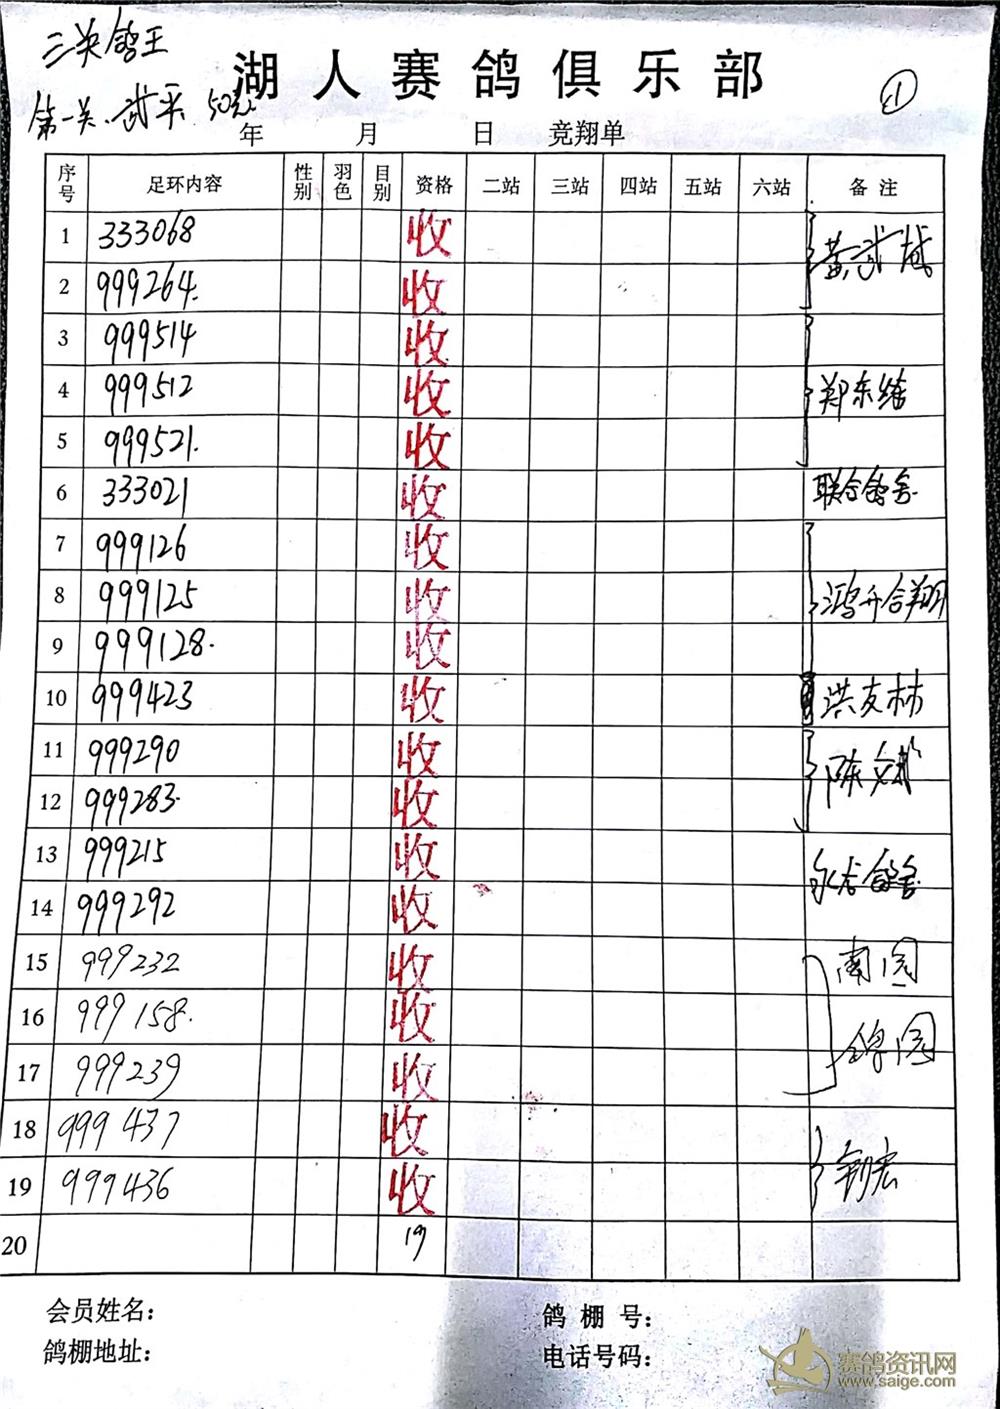 三关鸽王
湖人赛鸽俱乐部
第一关.武平 50元
①
年 月 日 竞翔单
序号 足环内容 性别 羽色 目别 资格 二站 三站 四站 五站 六站 备注
1 333068 收
黄武城
2 999264. 收
3 999514 收
4 999512 收 郑东结
5 999521. 收
6 333021 收 联合鸽舍.
7 999126 收
8 999125 收 鸿升合翔
9 999128. 收
10 999423 收 洪友林
11 999290 收
陈文彬
12 999283. 收
13 999215 收
永志鸽舍.
14 999292 收
15 999232 收 南园
16 999158. 收 鸽园
17 999239 收
18 999437 收
钊宏
19 999436 收
20 19
会员姓名： 鸽棚号：
鸽棚地址： 电话号码：
赛鸽资讯网
www.saige.com